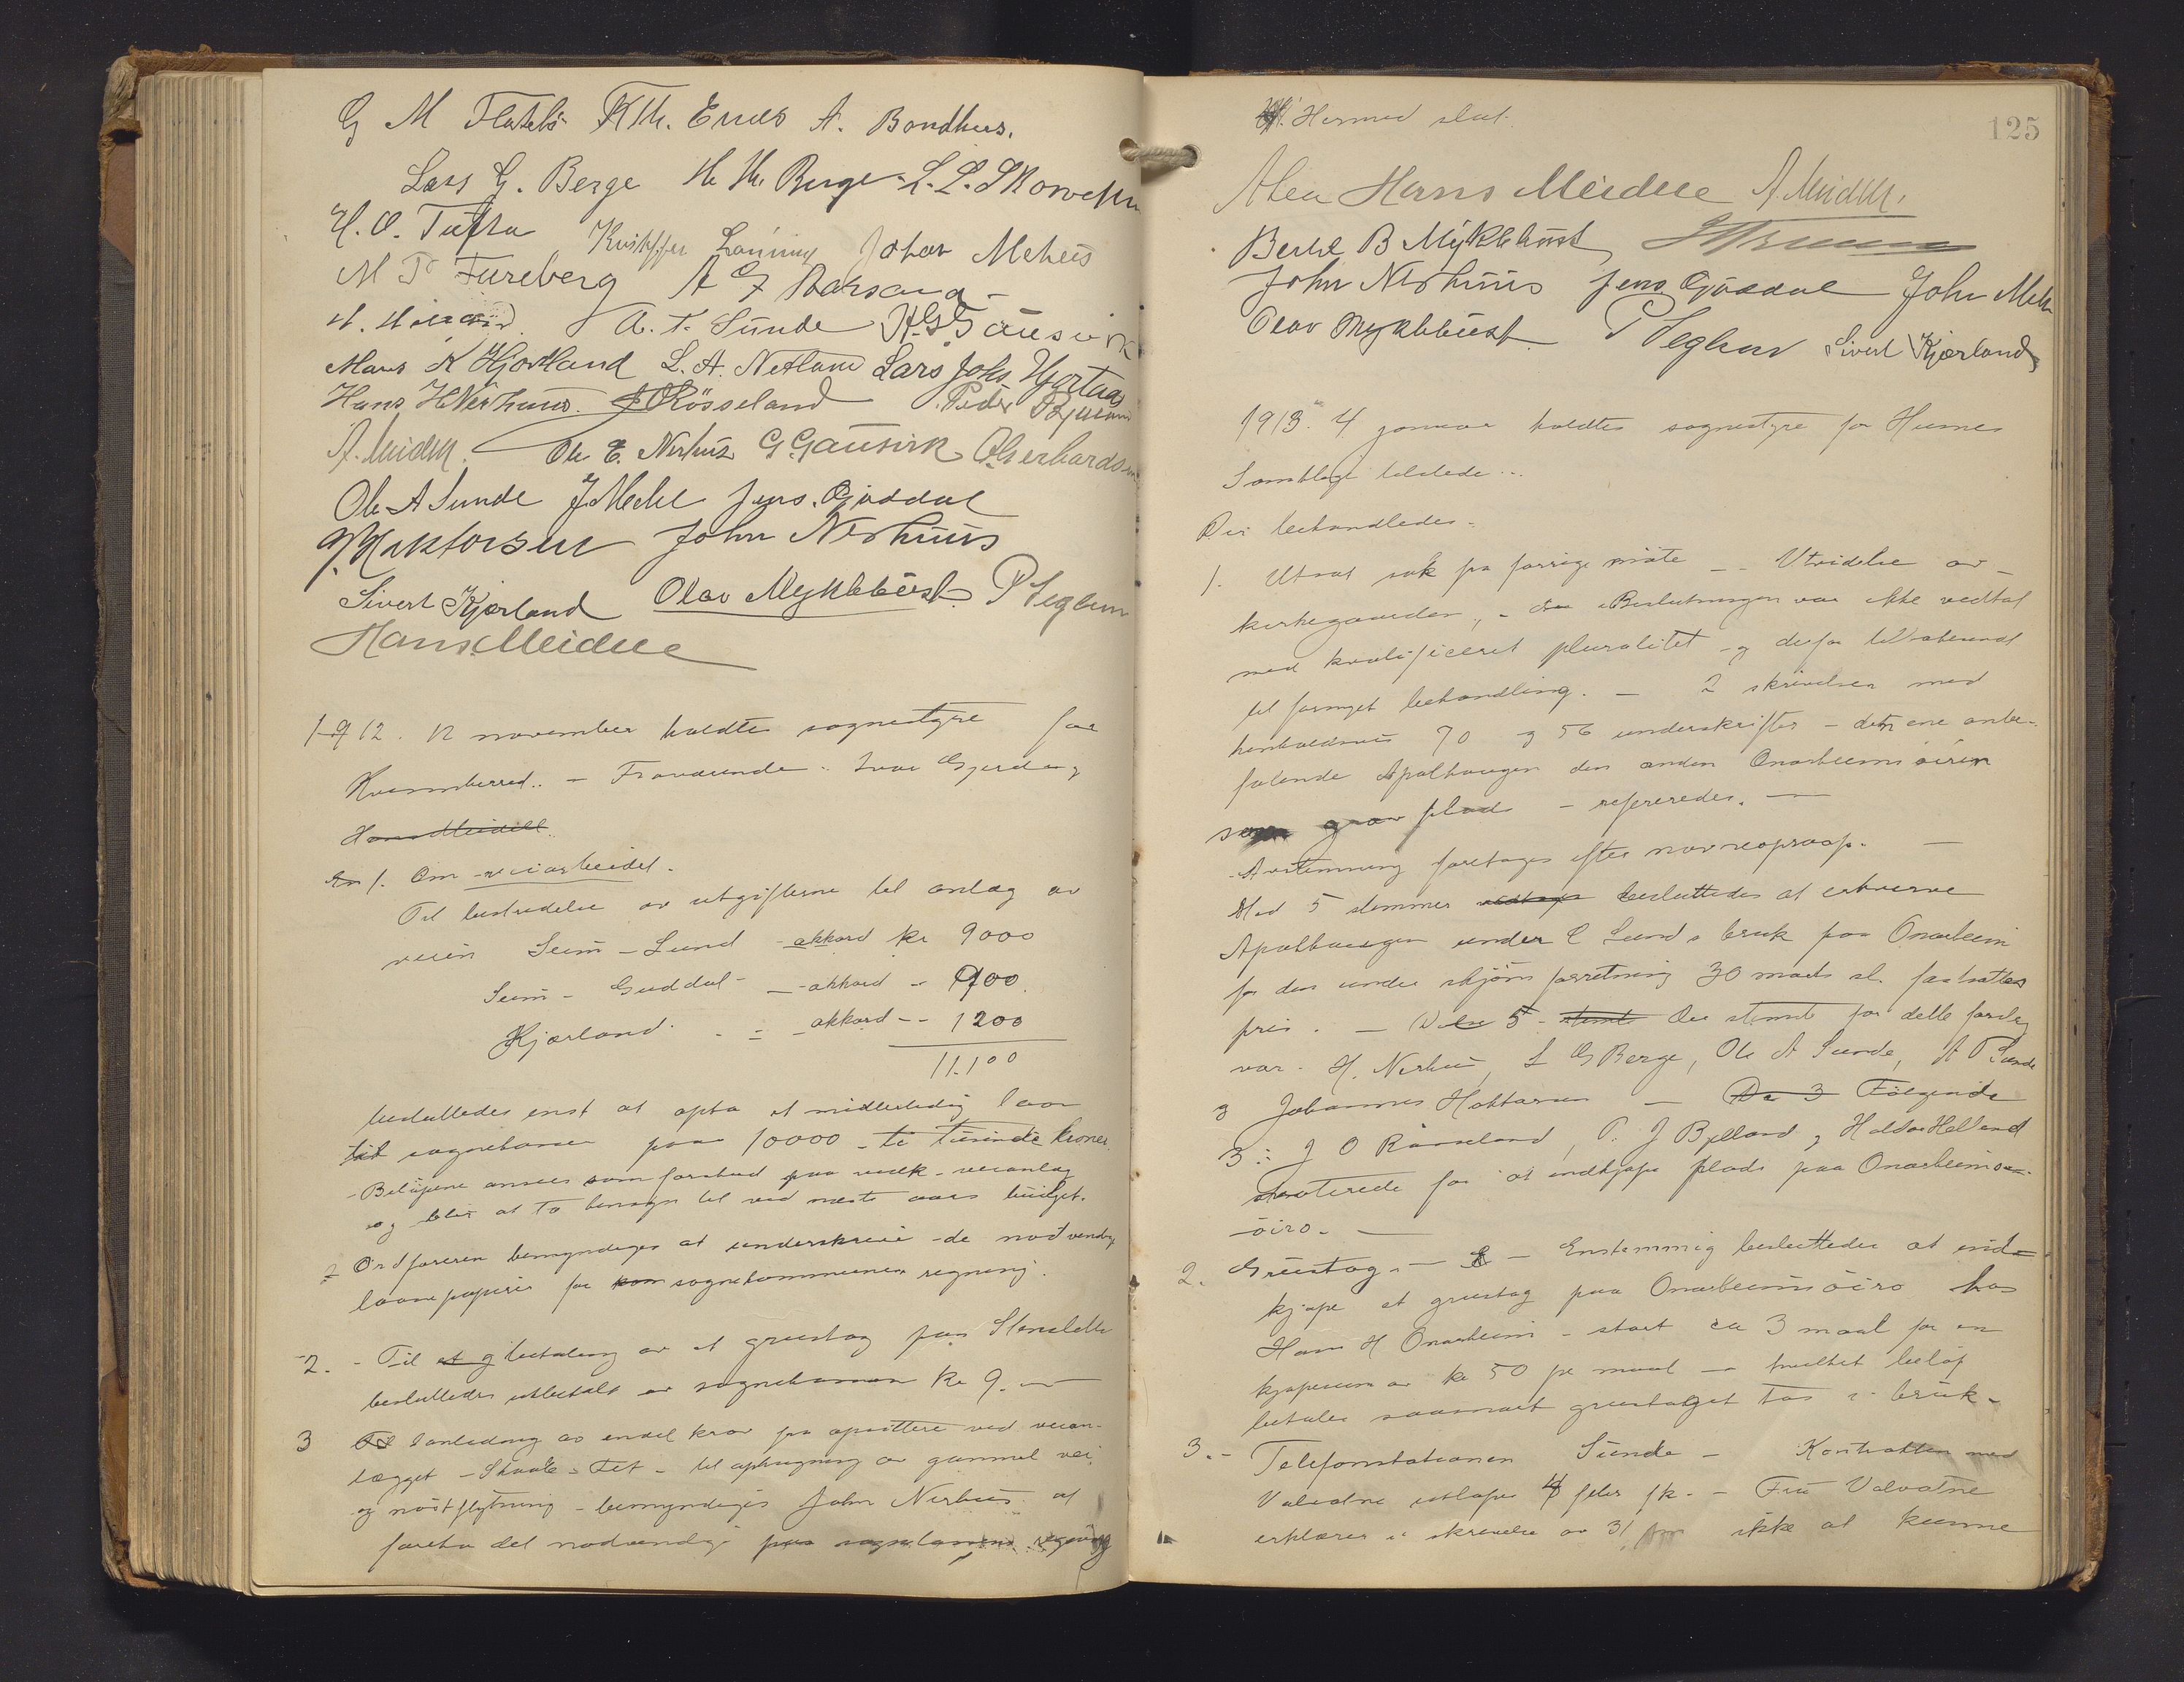 G M Flatebö K Th. Enes A. Bondhus.
Lars G. Berge H. Th. Berge L. L. Skorvehn
H. O. Tufta Kristoffer Lönning Johan Mehus
M P Fureberg A G
A. T. Sunde H. G. Gausvik
Mons K Hjortland L. A. Netland Lars Johs. Hjortaas
Hans H Nerhuus. J O Rösseland Peder
A. Meidell. Ole E. Nerhus G Gausvik O. Gerhardsen
Ole A Sunde J. Mehl Jens. Gjøddal
J. Haktorsen John Nerhuus
Sivert Kjærland Olav Myklebust P Seglem
Hans Meidell
1912. 12 november holdtes sognestyre for
Kvinnherred. - Fraværende: Ivar Gjerde og
Hans Meidell.
1. Om veiarbeidet.
Til bestridelse av utgifterne til anlæg av
veien Seim - Lund - akkord kr 9000
Seim - Guddal - - akkord - 900.
Kjærland - - akkord - - 1200
11.100
besluttedes enst at opta et midlertidig laan
til sognekassen paa 10000 - ti tusinde kroner.
- Beløpene ansees som forskud paa vedk. veianlæg
og blir at ta hensyn til ved næste aars budget.
Ordføreren bemyndiges at underskrive de nødvendige
laanepapirer for sognekommunens regning.
2. - Til betaling av et grustag paa Stensletten
besluttedes utbetalt av sognekassen kr 9. -
3 I anledning av endel krav fra opsittere ved veian-
lægget - Skaale - Fet - til oprugning av gammel vei
og nöstflytning - bemyndiges John Nerhus at
foreta det nødvendige paa regning
Hermed slut.
125
Hans Meidell A. Meidell.
Bertel B Myklebust
John Nerhuus Jens Gjøddal John Mehl
Olav Myklebust P Seglem Sivert Kjærland
1913. 4 januar holdtes sognestyre for Hernes
Samtlige tilstede...
Der behandledes -
1. Utsat sak fra forrige møte - Utvidelse av
kirkegaarden, - Beslutningen var ikke vedtat
med kvalificeret pluralitet og derfor tilbakesendt
til fornyet behandling. - 2 skrivelser med
henholdsvis 70 og 56 underskrifter - den ene anbe-
falende Apalhaugen den anden Onarheimsöiren
som grav plads - refereredes. -
Avstemning foretages efter navneoprop. -
Med 5 stemmer besluttedes at erhverve
Apalhaugen under C Lunds bruk paa Onarheim
for den under skjøns forretning 30 mai sl. fastsattes
pris. - De 5 - stemte Der stemte for dette forslag
var. H. Nerhus, L G Berge, Ole A Sunde, A T Sunde
og Johannes Haktorsen - De 3 Følgende
3: J O Røsseland, P. J Bjelland, Haldor Helland
voterede for at indkjøpe plads paa Onarheims-
öiro. -
2. Grustag. - - Enstemmig besluttedes at ind-
kjøpe et grustag paa Onarheimsöiro hos
Hans H Onarheim - stort ca 3 maal for en
kjøpesum av kr 50 pr maal - hvilket beløp
betales saasnart grustaget tas i bruk.
3. - Telefonstationen Sunde - Kontrakten med
Valvatne utløper 4 febr. f k. - Fru Valvatne
erklærer i skrivelse av 31 ikke at kunne